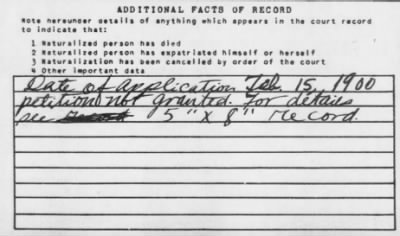 ADDITIONAL FACTS OF RECORD
Note hereunder details of anything which appears in the court record
to indicate that:
1 Naturalized person has died
2 Naturalized person has expatriated himself or herself
3 Naturalization has been cancelled by order of the court
4 Other important data
Date of Application Feb. 15, 1900
petition not granted. For details
see 5" x 8" record.